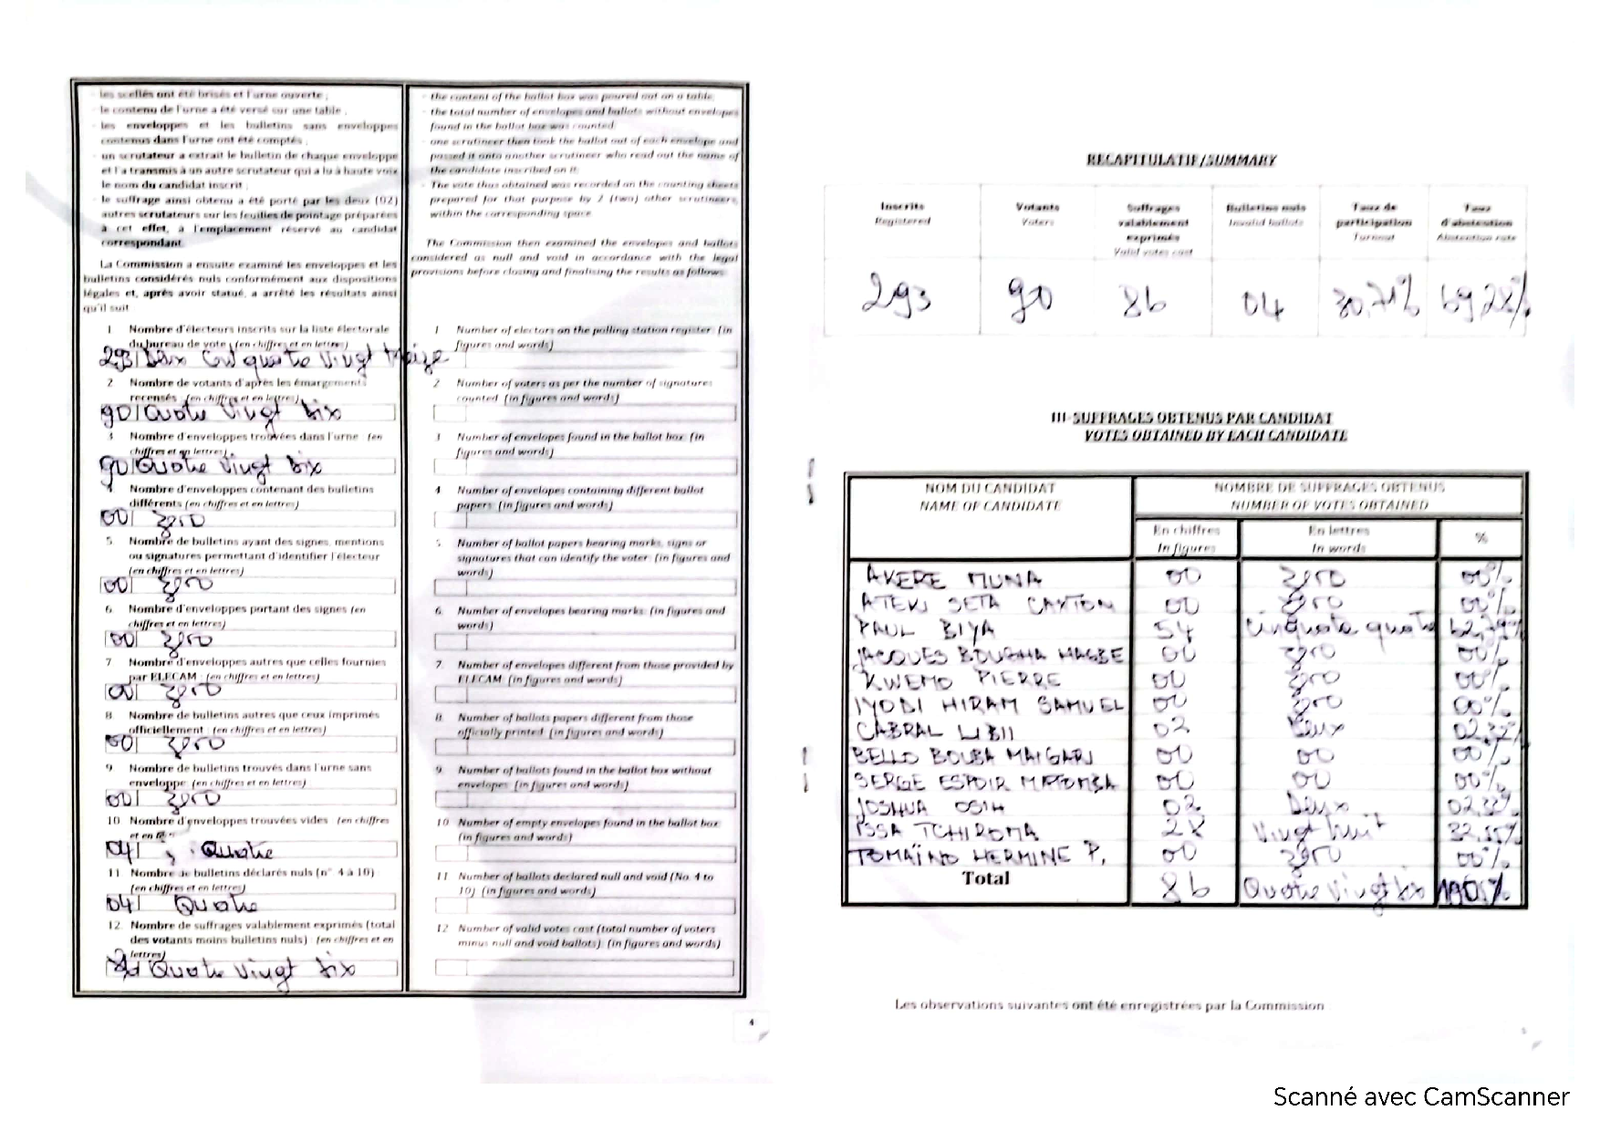 - les scellés ont été brisés et l'urne ouverte ;
- le contenu de l'urne a été versé sur une table ;
- les enveloppes et les bulletins sans enveloppes
contenus dans l'urne ont été comptés ;
- un scrutateur a extrait le bulletin de chaque enveloppe
et l'a transmis à un autre scrutateur qui a lu à haute voix
le nom du candidat inscrit ;
- le suffrage ainsi obtenu a été porté par les deux (02)
autres scrutateurs sur les feuilles de pointage préparées
à cet effet, à l'emplacement réservé au candidat
correspondant.
La Commission a ensuite examiné les enveloppes et les
bulletins considérés nuls conformément aux dispositions
légales et, après avoir statué, a arrêté les résultats ainsi
qu'il suit
1 Nombre d'électeurs inscrits sur la liste électorale
du bureau de vote (en chiffres et en lettres)
293 Deux Cent quatre Vingt Treize
2 Nombre de votants d'après les émargements
recensés (en chiffres et en lettres)
90 Quatre Vingt Dix
3 Nombre d'enveloppes trouvées dans l'urne (en
chiffres et en lettres)
90 Quatre Vingt Dix
4 Nombre d'enveloppes contenant des bulletins
différents (en chiffres et en lettres)
00 zéro
5 Nombre de bulletins ayant des signes, mentions
ou signatures permettant d'identifier l'électeur
(en chiffres et en lettres)
00 zéro
6 Nombre d'enveloppes portant des signes (en
chiffres et en lettres)
00 zéro
7 Nombre d'enveloppes autres que celles fournies
par ELECAM (en chiffres et en lettres)
00 zéro
8 Nombre de bulletins autres que ceux imprimés
officiellement (en chiffres et en lettres)
00 zéro
9 Nombre de bulletins trouvés dans l'urne sans
enveloppe (en chiffres et en lettres)
00 zéro
10 Nombre d'enveloppes trouvées vides (en chiffres
04 Quatre
11 Nombre de bulletins déclarés nuls (n° 4 à 10)
(en chiffres et en lettres)
04 Quatre
12. Nombre de suffrages valablement exprimés (total
des votants moins bulletins nuls) (en chiffres et en
lettres)
Quatre Vingt six
- the content of the ballot box was poured out on a table;
- the total number of envelopes and ballots without envelopes
found in the ballot box was counted
- one scrutineer then took the ballot out of each envelope and
passed it onto another scrutineer who read out the name of
the candidate inscribed on it;
- The vote thus obtained was recorded on the counting sheets
prepared for that purpose by 2 (two) other scrutineers,
within the corresponding space
The Commission then examined the envelopes and ballots
considered as null and void in accordance with the legal
provisions before closing and finalising the results as follows
1 Number of electors on the polling station register (in
figures and words)
2 Number of voters as per the number of signatures
counted (in figures and words)
3 Number of envelopes found in the ballot box (in
figures and words)
4 Number of envelopes containing different ballot
papers (in figures and words)
5 Number of ballot papers bearing marks, signs or
signatures that can identify the voter (in figures and
words)
6. Number of envelopes bearing marks (in figures and
words)
7. Number of envelopes different from those provided by
ELECAM (in figures and words)
8. Number of ballots papers different from those
officially printed (in figures and words)
9. Number of ballots found in the ballot box without
envelopes (in figures and words)
10 Number of empty envelopes found in the ballot box
(in figures and words)
11 Number of ballots declared null and void (No 4 to
10) (in figures and words)
12 Number of valid votes cast (total number of voters
minus null and void ballots) (in figures and words)
4
RECAPITULATIF/SUMMARY
Inscrits Registered
Votants Voters
Suffrages valablement exprimés Valid votes cast
Bulletins nuls Invalid ballots
Taux de participation Turnout
Taux d'abstention Abstention rate
293 90 86 04 30,71% 69,28%
III-SUFFRAGES OBTENUS PAR CANDIDAT
VOTES OBTAINED BY EACH CANDIDATE
NOM DU CANDIDAT
NAME OF CANDIDATE
NOMBRE DE SUFFRAGES OBTENUS
NUMBER OF VOTES OBTAINED
En chiffres En lettres %
In figures In words
AKERE MUNA 00 zéro 00%
ATEKI SETA CAXTON 00 zéro 00%
PAUL BIYA 54 cinquante quatre 62,79%
JACQUES BOUGHA HAGBE 00 zéro 00%
KWEMO PIERRE 00 zéro 00%
IYODI HIRAM SAMUEL 00 zéro 00%
CABRAL LIBII 02 Deux 02,32%
BELLO BOUBA MAIGARI 00 00 00%
SERGE ESPOIR MATOMBA 00 00 00%
JOSHUA OSIH 02 Deux 02,32%
ISSA TCHIROMA 28 Vingt huit 32,55%
TOMAÏNO HERMINE P. 00 zéro 00%
Total 86 Quatre Vingt six 100%
Les observations suivantes ont été enregistrées par la Commission
5
Scanné avec CamScanner